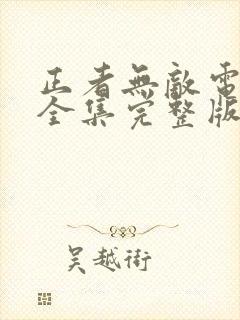 正者無敵電
全集完整版
吴越術